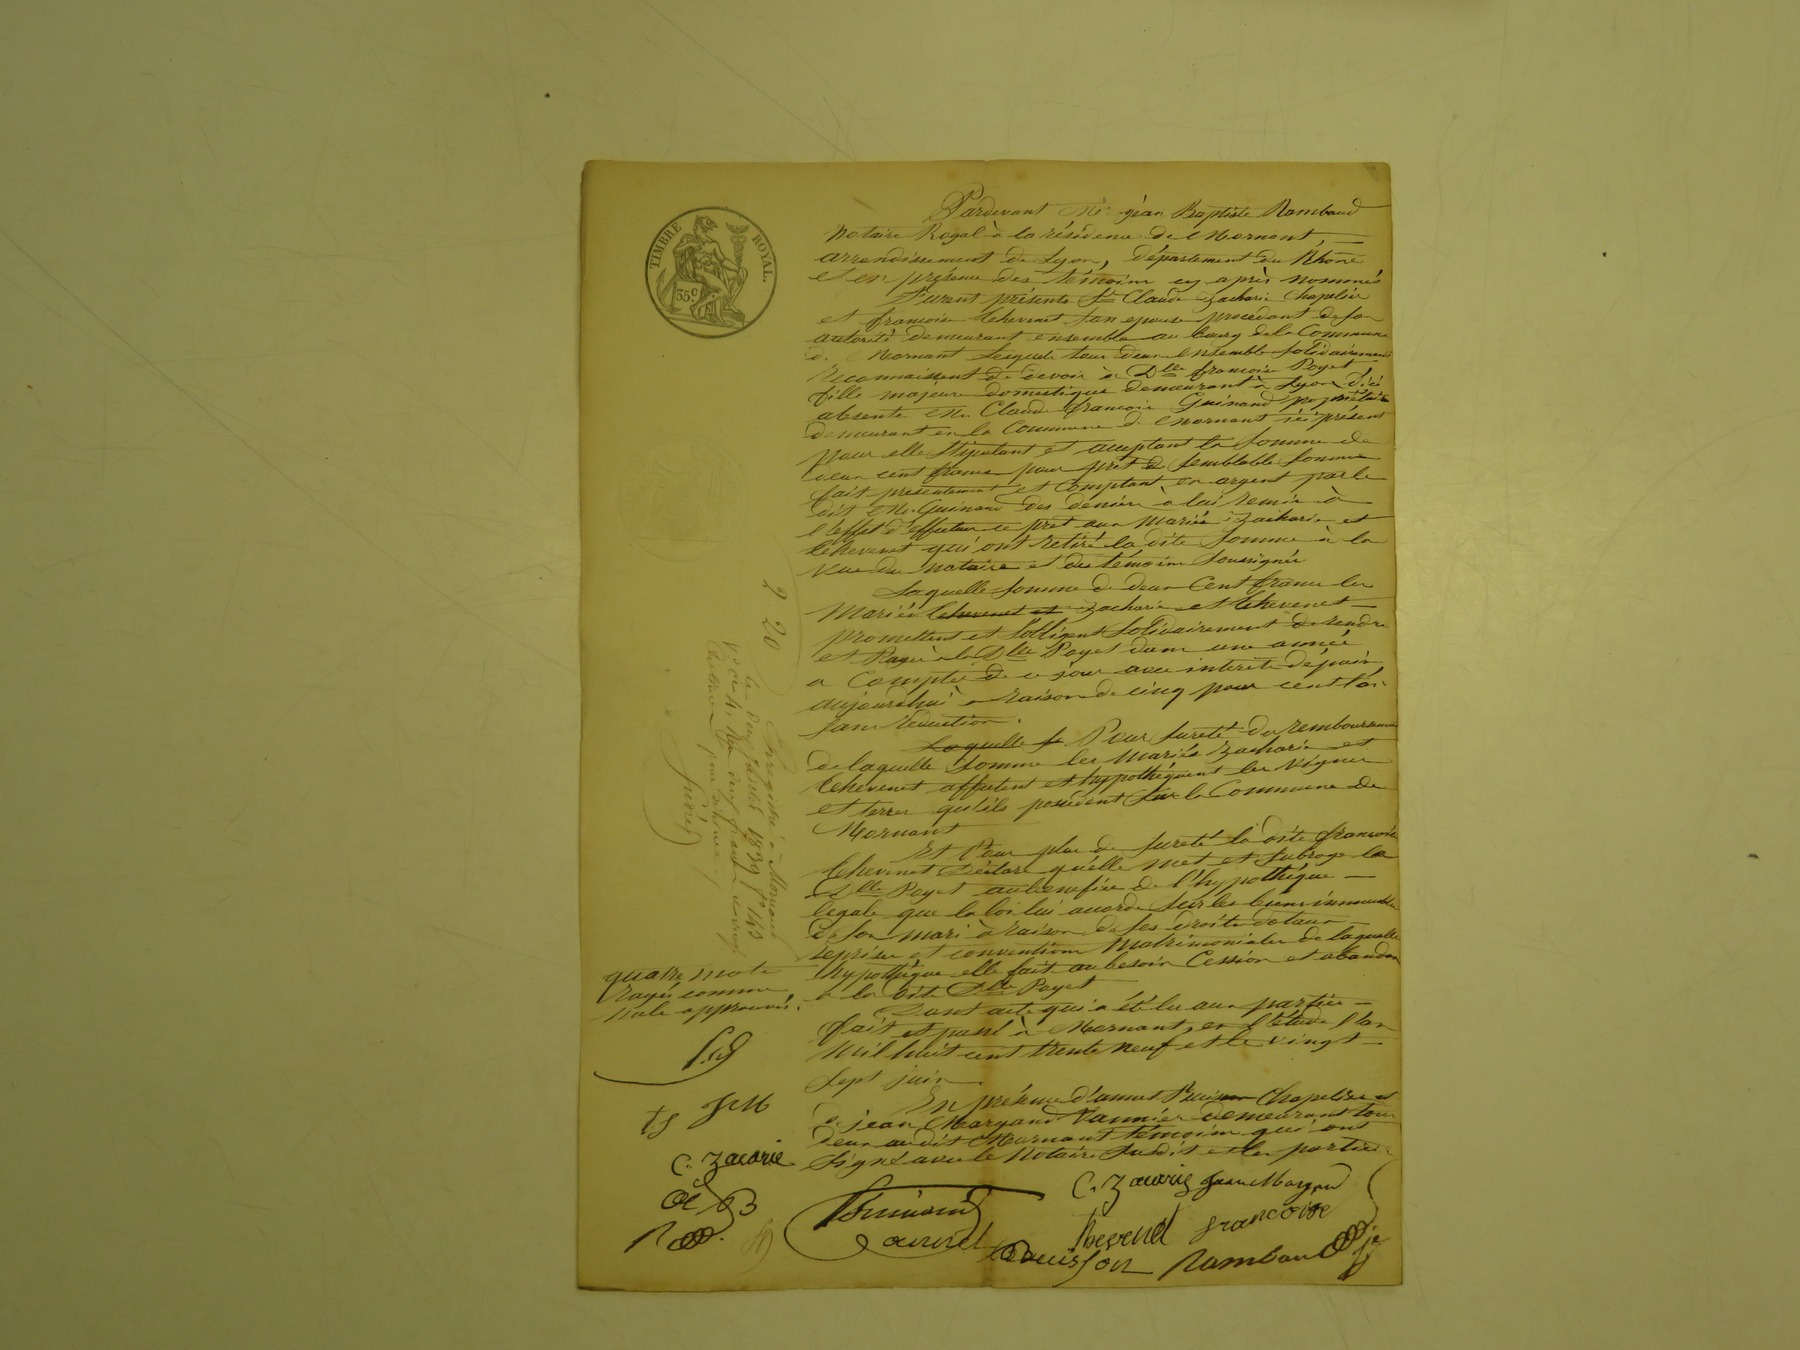 TIMBRE ROYAL.
35 c
Pardevant Me jean Baptiste Rambaud
Notaire Royal à la résidence de Mornant,
arrondissement de Lyon, département du Rhône
et en présence des témoins cy après nommés
furent présents St Claude Zacharie Chapelier
et francoise Chevenet son epouse procedant de son
autorité demeurant ensemble au bourg de la Commune
de Mornant lesquels tous deux ensemble solidairement
reconnaissent de devoir à Dlle francoise Poyet
fille majeure domestique demeurant à Lyon d'ici
absente Mr Claude francois Guinand propriétaire
demeurant en la Commune de Mornant ici présent
pour elle stipulant et acceptant la somme de
deux cent francs pour prêt de semblable somme
fait présentement et comptant en argent par le
dit Mr Guinand des deniers à lui remis à
l'effet d'effectuer ce prêt aux mariés Zacharie et
Chevenet qui ont retiré la dite somme à la
vue du notaire et des témoins soussignés
Laquelle somme de deux Cent francs les
mariés Chevenet et Zacharie et Chevenet
promettent et s'obligent solidairement de rendre
et Payer à la Dlle Poyet dans une année
a Compter de ce jour avec interets depuis
aujourd'hui à raison de cinq pour cent l'an
sans reduction.
Laquelle s Pour sureté du remboursement
de laquelle somme les mariés Zacharie et
Chevenet affectent et hypothéquent les vignes
et terres qu'ils possèdent sur la Commune de
Mornant
Et Pour plus de sureté la dite francoise
Chevenet déclare qu'elle met et subroge la
Dlle Poyet au benefice de l'hypothéque
legale que la loi lui accorde sur les biens immeubles
de son mari à raison de ses droits dotaux
reprises et conventions matrimoniales de laquelle
hypothéque elle fait au besoin Cession et abandon
à la dite Dlle Poyet
Dont acte qui a été lu aux parties
fait et passé à Mornant, en l'étude l'an
mil huit cent trente neuf et le vingt
sept juin
En présence d'annet Buisson Chapelier et
de jean Margand Vannier demeurant tous
deux au dit Mornant témoins qui ont
signé avec le Notaire susdit et les parties
quatre mots
rayés comme
nuls approuvés.
J M
C. Zacarie
2 20
Enregistré à Mornant
le deux juillet 1839 fo 143
C. Zacarie jean Margand
Guinand
hevenet francoise
Buisson Rambaud